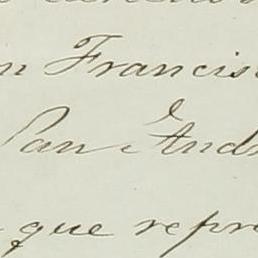 n Francis
San Andr
que repre